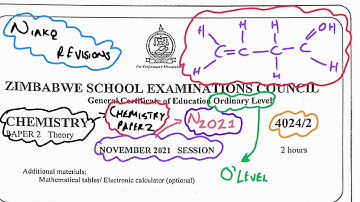 NIAKO
REVISIONS
OH
H H
C = C – C – C
H H H
For Performance Measurement
ZIMBABWE SCHOOL EXAMINATIONS COUNCIL
General Certificate of Education Ordinary Level
CHEMISTRY CHEMISTRY N2021 4024/2
PAPER 2 Theory PAPER 2
NOVEMBER 2021 SESSION 2 hours
Additional materials: O'LEVEL
Mathematical tables/ Electronic calculator (optional)